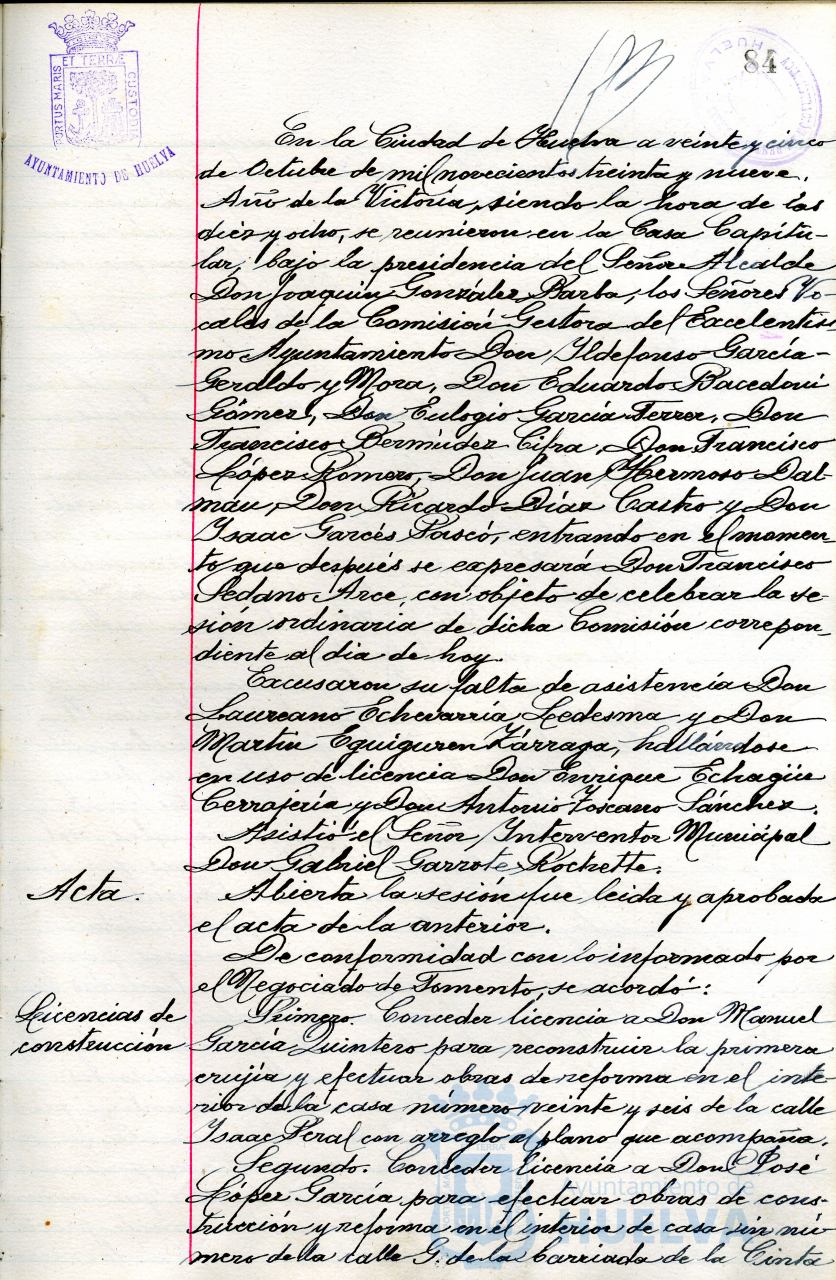 PORTUS MARIS ET TERRÆ CUSTODIA
AYUNTAMIENTO DE HUELVA
84
En la Ciudad de Huelva a veinte y cinco
de Octubre de mil novecientos treinta y nueve.
Año de la Victoria, siendo la hora de las
diez y ocho, se reunieron en la Casa Capitu-
lar, bajo la presidencia del Señor Alcalde
Don Joaquín González Barba, los Señores Vo-
cales de la Comisión Gestora del Excelentísi-
mo Ayuntamiento Don Ildefonso García-
Geraldo y Mora, Don Eduardo Bacedoni
Gómez, Don Eulogio García Ferrer, Don
Francisco Bermúdez Cifra, Don Francisco
López Romero, Don Juan Hermoso Dal-
máu, Don Ricardo Díaz Castro y Don
Isaac Garcés Pascó, entrando en el momen-
to que después se expresará Don Francisco
Sedano Arce, con objeto de celebrar la se-
sión ordinaria de dicha Comisión correpon-
diente al dia de hoy.
Excusaron su falta de asistencia Don
Laureano Echevarría Ledesma y Don
Martín Eguiguren Zárraga, hallándose
en uso de licencia Don Enrique Echagüe
Cerrajería y Don Antonio Toscano Sánchez.
Asistió el Señor Interventor Municipal
Don Gabriel Garrote Rochette.
Acta.
Abierta la sesión fue leida y aprobada
el acta de la anterior.
De conformidad con lo informado por
el Negociado de Fomento, se acordó:
Licencias de
construcción
Primero. Conceder licencia a Don Manuel
García Quintero para reconstruir la primera
crujía y efectuar obras de reforma en el inte-
rior de la casa número veinte y seis de la calle
Isaac Peral con arreglo al plano que acompaña.
Segundo. Conceder licencia a Don José
López García para efectuar obras de cons-
trucción y reforma en el interior de casa sin nú-
mero de la calle G. de la barriada de la Cinta
Ayuntamiento de
HUELVA